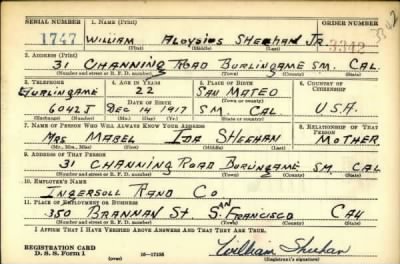 SERIAL NUMBER 1. NAME (Print) ORDER NUMBER
1747 WILLIAM ALOYSIUS SHEEHAN JR. 3342
(First) (Middle) (Last)
2. ADDRESS (Print)
31 CHANNING ROAD BURLINGAME SM. CAL.
(Number and street or R. F. D. number) (Town) (County) (State)
3. TELEPHONE 4. AGE IN YEARS 5. PLACE OF BIRTH 6. COUNTRY OF CITIZENSHIP
BURLINGAME 22 SAN MATEO
DATE OF BIRTH (Town or county)
6042J DEC 14 1917 S.M. CAL U.S.A.
(Exchange) (Number) (Mo.) (Day) (Yr.) (State or country)
7. NAME OF PERSON WHO WILL ALWAYS KNOW YOUR ADDRESS 8. RELATIONSHIP OF THAT PERSON
MRS MABEL IDA SHEEHAN MOTHER
(Mr., Mrs., Miss) (First) (Middle) (Last)
9. ADDRESS OF THAT PERSON
31 CHANNING ROAD BURLINGAME SM. CAL
(Number and street or R. F. D. number) (Town) (County) (State)
10. EMPLOYER'S NAME
INGERSOLL RAND CO
11. PLACE OF EMPLOYMENT OR BUSINESS
350 BRANNAN ST SAN FRANCISCO CAL
(Number and street or R. F. D. number) (Town) (County) (State)
I AFFIRM THAT I HAVE VERIFIED ABOVE ANSWERS AND THAT THEY ARE TRUE.
REGISTRATION CARD William Sheehan
D. S. S. Form 1 16—17105 (Registrant's signature)